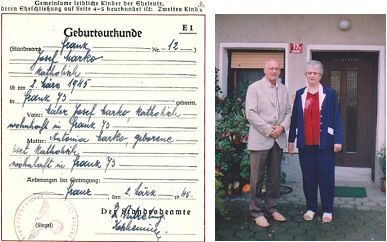 Gemeinsame leibliche Kinder der Eheleute,
deren Eheschließung auf Seite 4-5 beurkundet ist: Zweites Kind
E 1
Geburtsurkunde
(Standesamt Franz Nr. 12)
Josef Marko
Katholisch
ist am 2. März 1945
in Franz 73 geboren.
Vater: Maler Josef Marko Katholisch
wohnhaft in Franz 73
Mutter: Antonia Marko geborene
Katholisch
wohnhaft in Franz 73
Änderungen der Eintragung:
Franz, den 2. März 1945.
Der Standesbeamte
(Siegel)
17